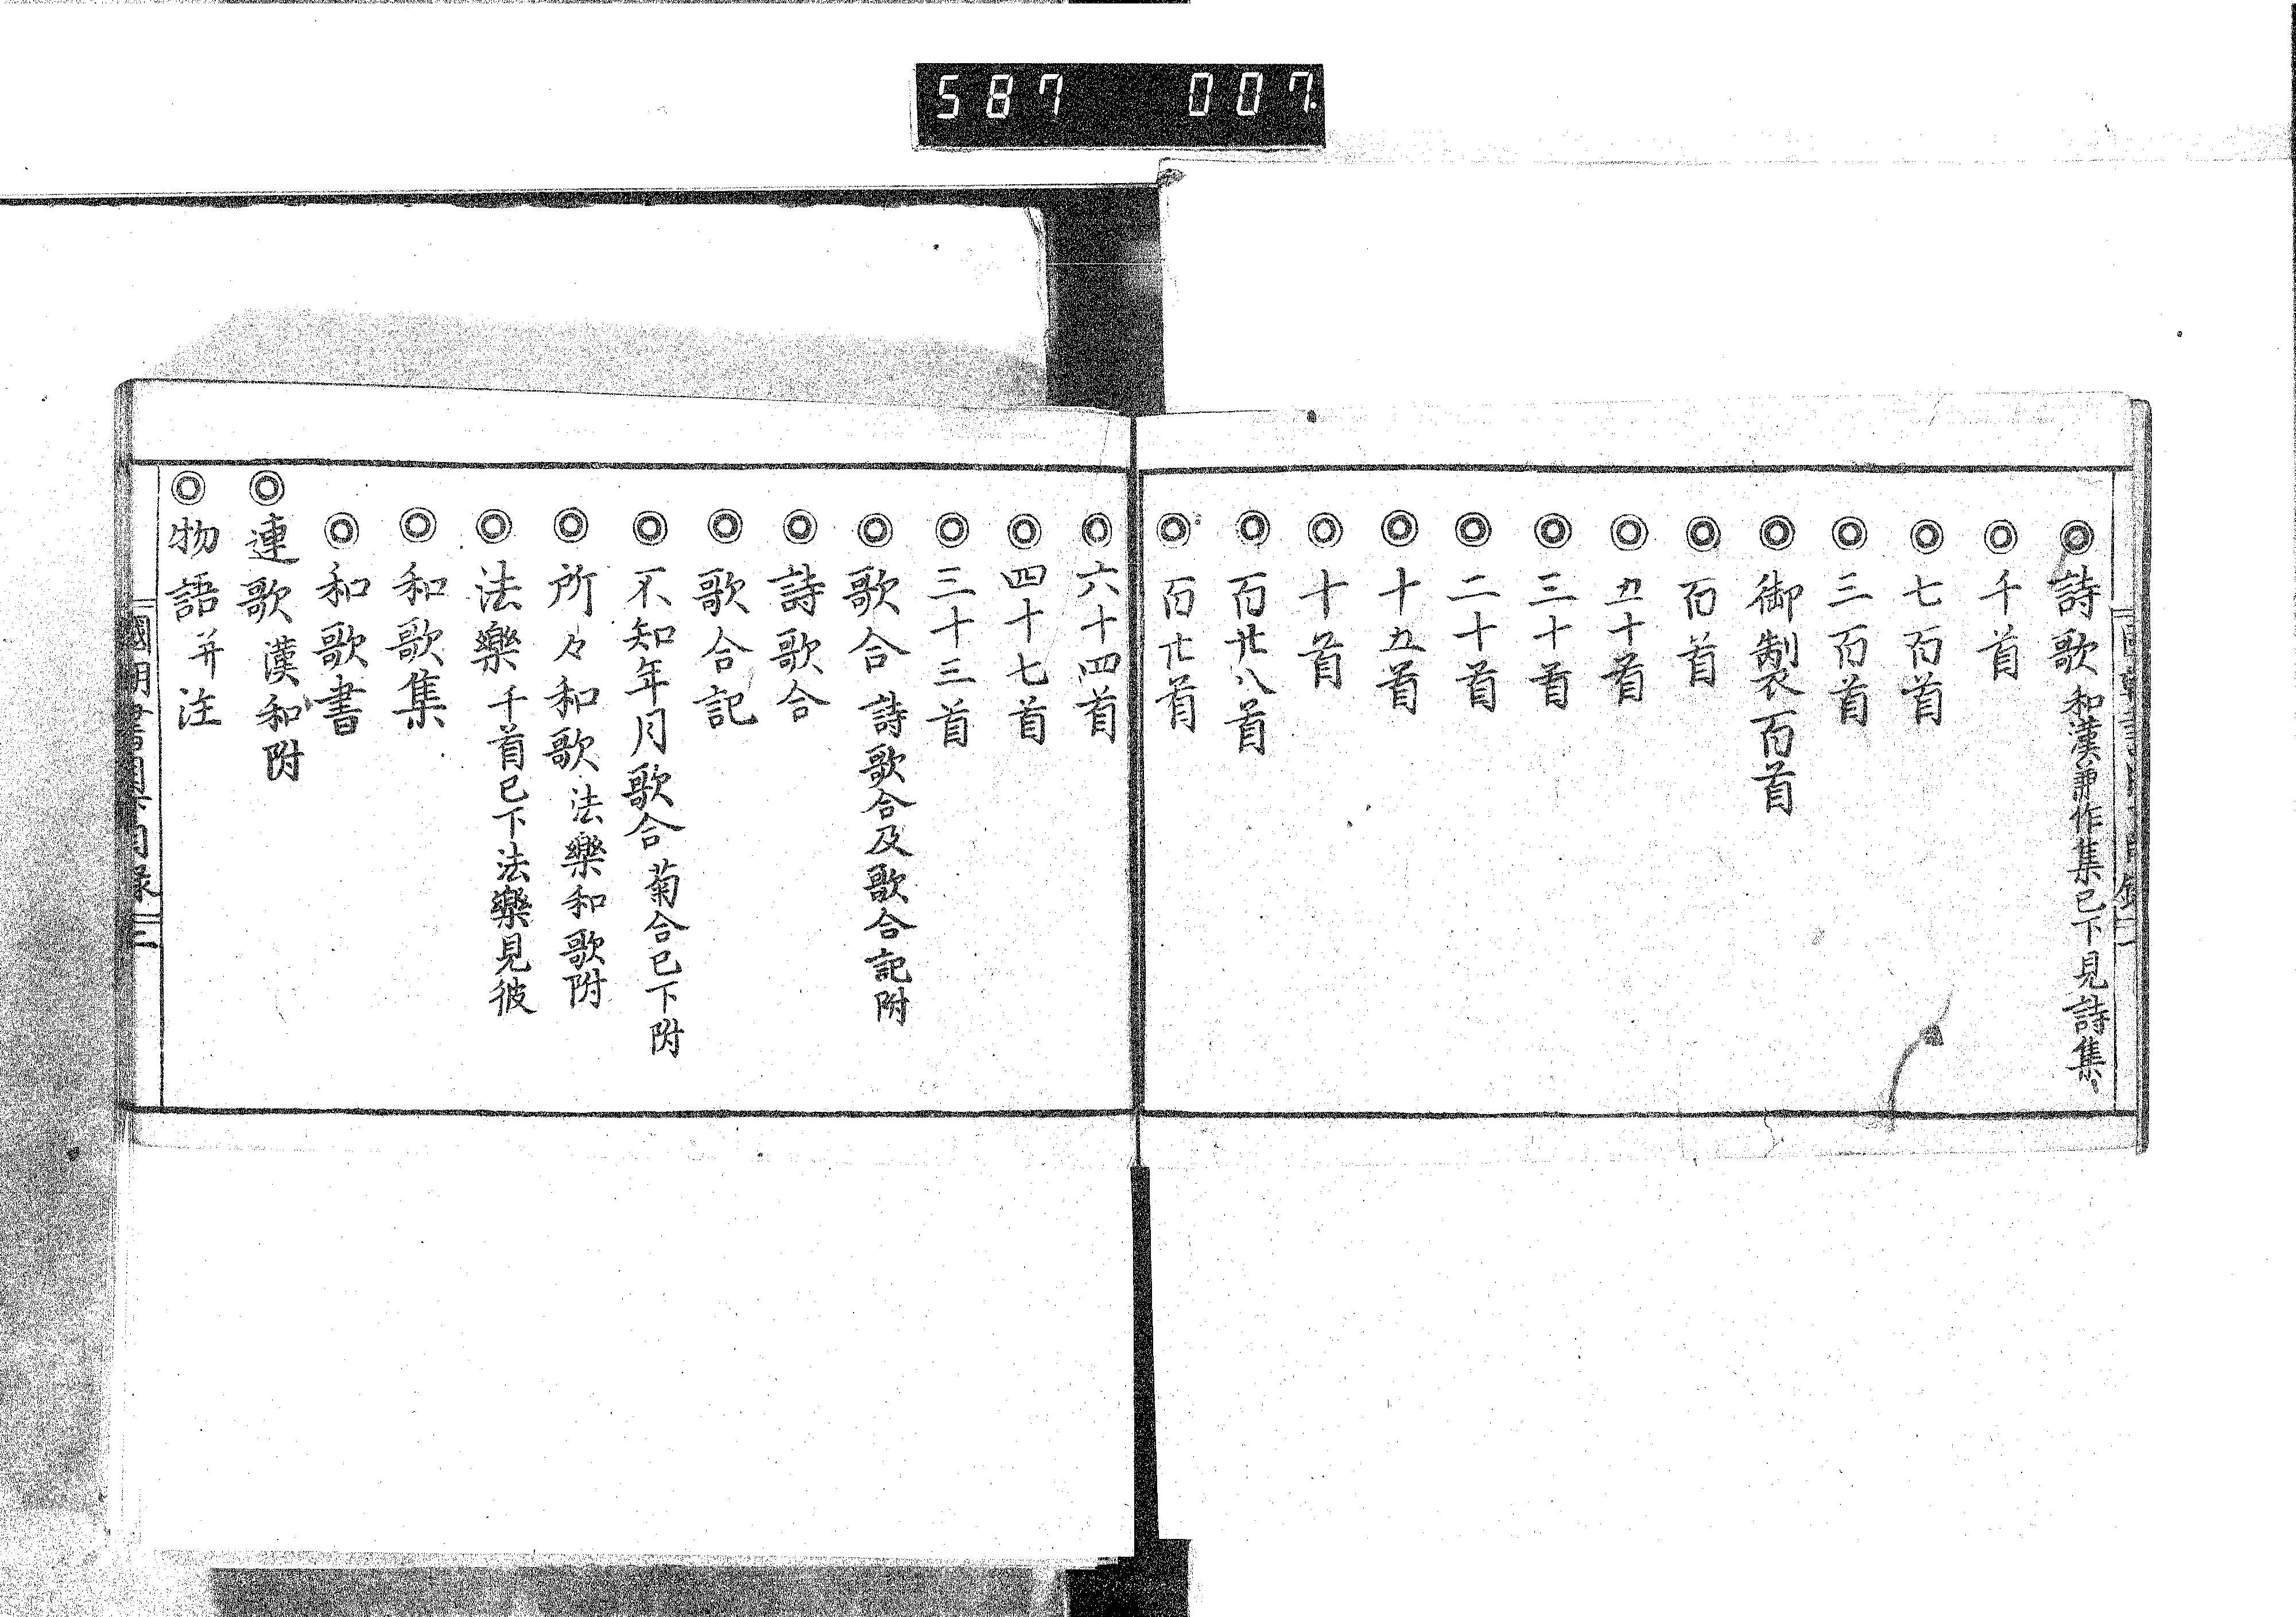 587 007
◎詩歌 和漢兼作集已下見詩集。
◎千首
◎七百首
◎三百首
◎御製百首
◎百首
◎五十首
◎三十首
◎二十首
◎十五首
◎十首
◎百廿八首
◎百廿首
◎六十四首
◎四十七首
◎三十三首
◎歌合 詩歌合及歌合記附
◎詩歌合
◎歌合記
◎不知年月歌合 菊合已下附
◎所々和歌 法樂和歌附
◎法樂 千首已下法樂見彼
◎和歌集
◎和歌書
◎連歌 漢和附
◎物語 并注